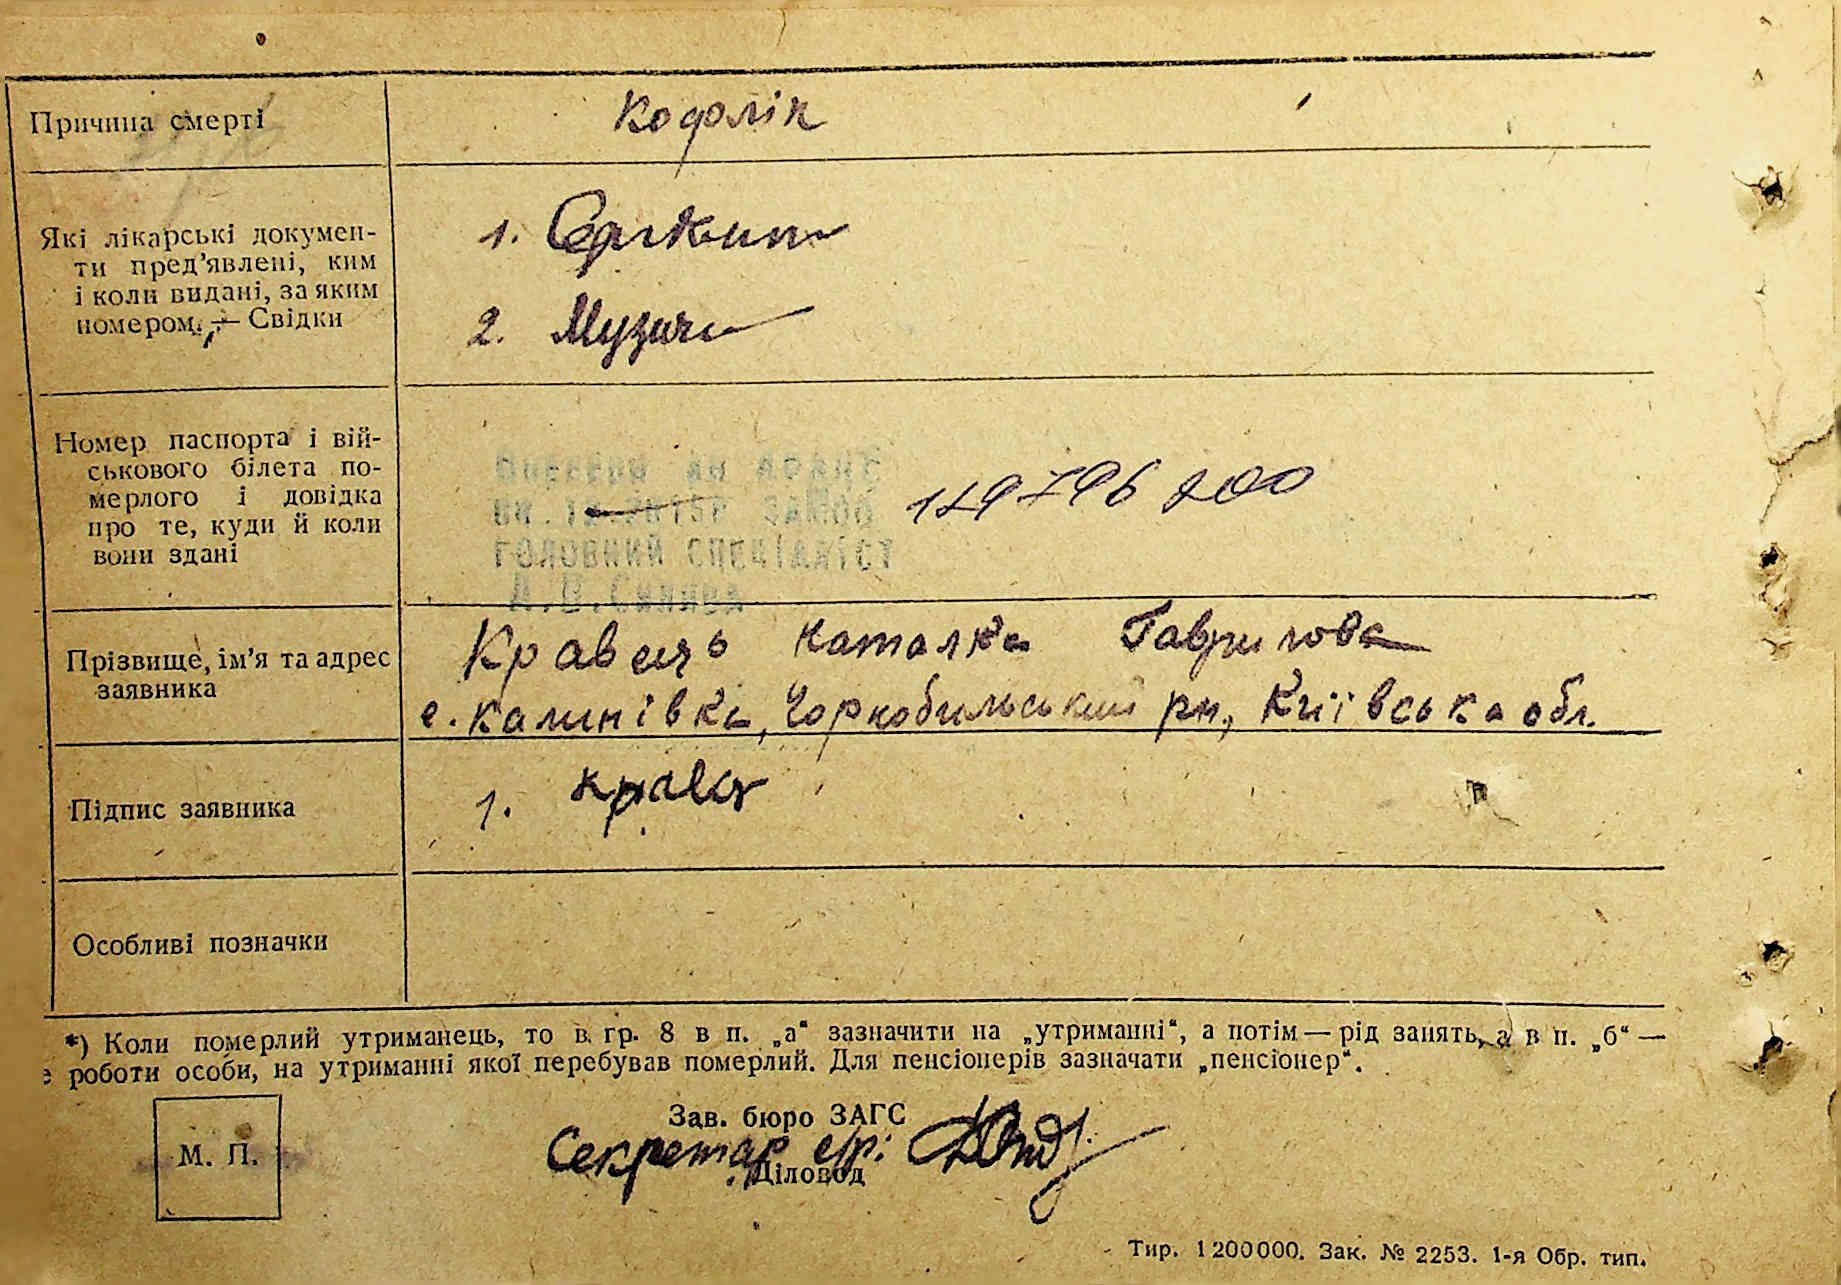 Причина смерті
Кофлік
Які лікарські докумен-
ти пред'явлені, ким
і коли видані, за яким
номером, — Свідки
1.
2. Музич
Номер паспорта і вій-
ськового білета по-
мерлого і довідка
про те, куди й коли
вони здані
ГОЛОВНИЙ СПЕЦІАЛІСТ
Прізвище, ім'я та адрес
заявника
Кравець Наталка Гаврилова
с. Калинівка, Чорнобильський рн, Київська обл.
Підпис заявника
1. Кравец
Особливі позначки
*) Коли померлий утриманець, то в гр. 8 в п. „а“ зазначити на „утриманні“, а потім — рід занять, а в п. „б“ —
е роботи особи, на утриманні якої перебував померлий. Для пенсіонерів зазначати „пенсіонер“.
М. П.
Зав. бюро ЗАГС
Секретар с/р:
Діловод
Тир. 1200000. Зак. № 2253. 1-я Обр. тип.